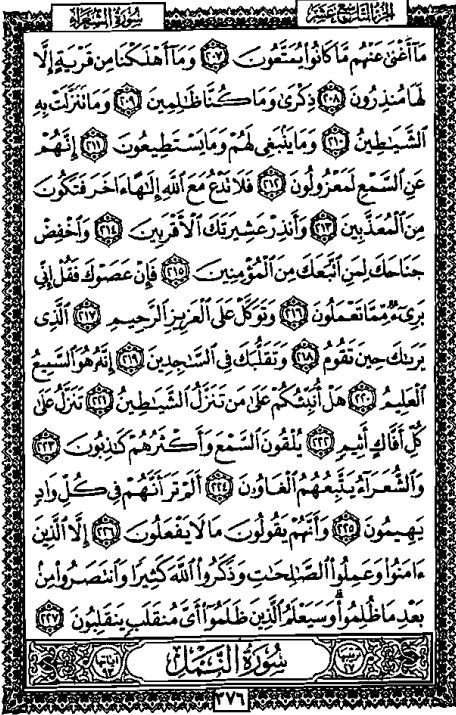 الجزء التاسع عشر
سُورَةُ الشُّعَرَاءِ
مَآ أَغْنَىٰ عَنْهُم مَّا كَانُوا۟ يُمَتَّعُونَ ٢٠٧ وَمَآ أَهْلَكْنَا مِن قَرْيَةٍ إِلَّا
لَهَا مُنذِرُونَ ٢٠٨ ذِكْرَىٰ وَمَا كُنَّا ظَـٰلِمِينَ ٢٠٩ وَمَا تَنَزَّلَتْ بِهِ
ٱلشَّيَـٰطِينُ ٢١٠ وَمَا يَنۢبَغِى لَهُمْ وَمَا يَسْتَطِيعُونَ ٢١١ إِنَّهُمْ
عَنِ ٱلسَّمْعِ لَمَعْزُولُونَ ٢١٢ فَلَا تَدْعُ مَعَ ٱللَّهِ إِلَـٰهًا ءَاخَرَ فَتَكُونَ
مِنَ ٱلْمُعَذَّبِينَ ٢١٣ وَأَنذِرْ عَشِيرَتَكَ ٱلْأَقْرَبِينَ ٢١٤ وَٱخْفِضْ
جَنَاحَكَ لِمَنِ ٱتَّبَعَكَ مِنَ ٱلْمُؤْمِنِينَ ٢١٥ فَإِنْ عَصَوْكَ فَقُلْ إِنِّى
بَرِىٓءٌ مِّمَّا تَعْمَلُونَ ٢١٦ وَتَوَكَّلْ عَلَى ٱلْعَزِيزِ ٱلرَّحِيمِ ٢١٧ ٱلَّذِى
يَرَىٰكَ حِينَ تَقُومُ ٢١٨ وَتَقَلُّبَكَ فِى ٱلسَّـٰجِدِينَ ٢١٩ إِنَّهُۥ هُوَ ٱلسَّمِيعُ
ٱلْعَلِيمُ ٢٢٠ هَلْ أُنَبِّئُكُمْ عَلَىٰ مَن تَنَزَّلُ ٱلشَّيَـٰطِينُ ٢٢١ تَنَزَّلُ عَلَىٰ
كُلِّ أَفَّاكٍ أَثِيمٍ ٢٢٢ يُلْقُونَ ٱلسَّمْعَ وَأَكْثَرُهُمْ كَـٰذِبُونَ ٢٢٣
وَٱلشُّعَرَآءُ يَتَّبِعُهُمُ ٱلْغَاوُۥنَ ٢٢٤ أَلَمْ تَرَ أَنَّهُمْ فِى كُلِّ وَادٍ
يَهِيمُونَ ٢٢٥ وَأَنَّهُمْ يَقُولُونَ مَا لَا يَفْعَلُونَ ٢٢٦ إِلَّا ٱلَّذِينَ
ءَامَنُوا۟ وَعَمِلُوا۟ ٱلصَّـٰلِحَـٰتِ وَذَكَرُوا۟ ٱللَّهَ كَثِيرًا وَٱنتَصَرُوا۟ مِنۢ
بَعْدِ مَا ظُلِمُوا۟ ۗ وَسَيَعْلَمُ ٱلَّذِينَ ظَلَمُوٓا۟ أَىَّ مُنقَلَبٍ يَنقَلِبُونَ ٢٢٧
ترتيبها ٢٧
سُورَةُ النَّمْلِ
آياتها ٩٣
٣٧٦